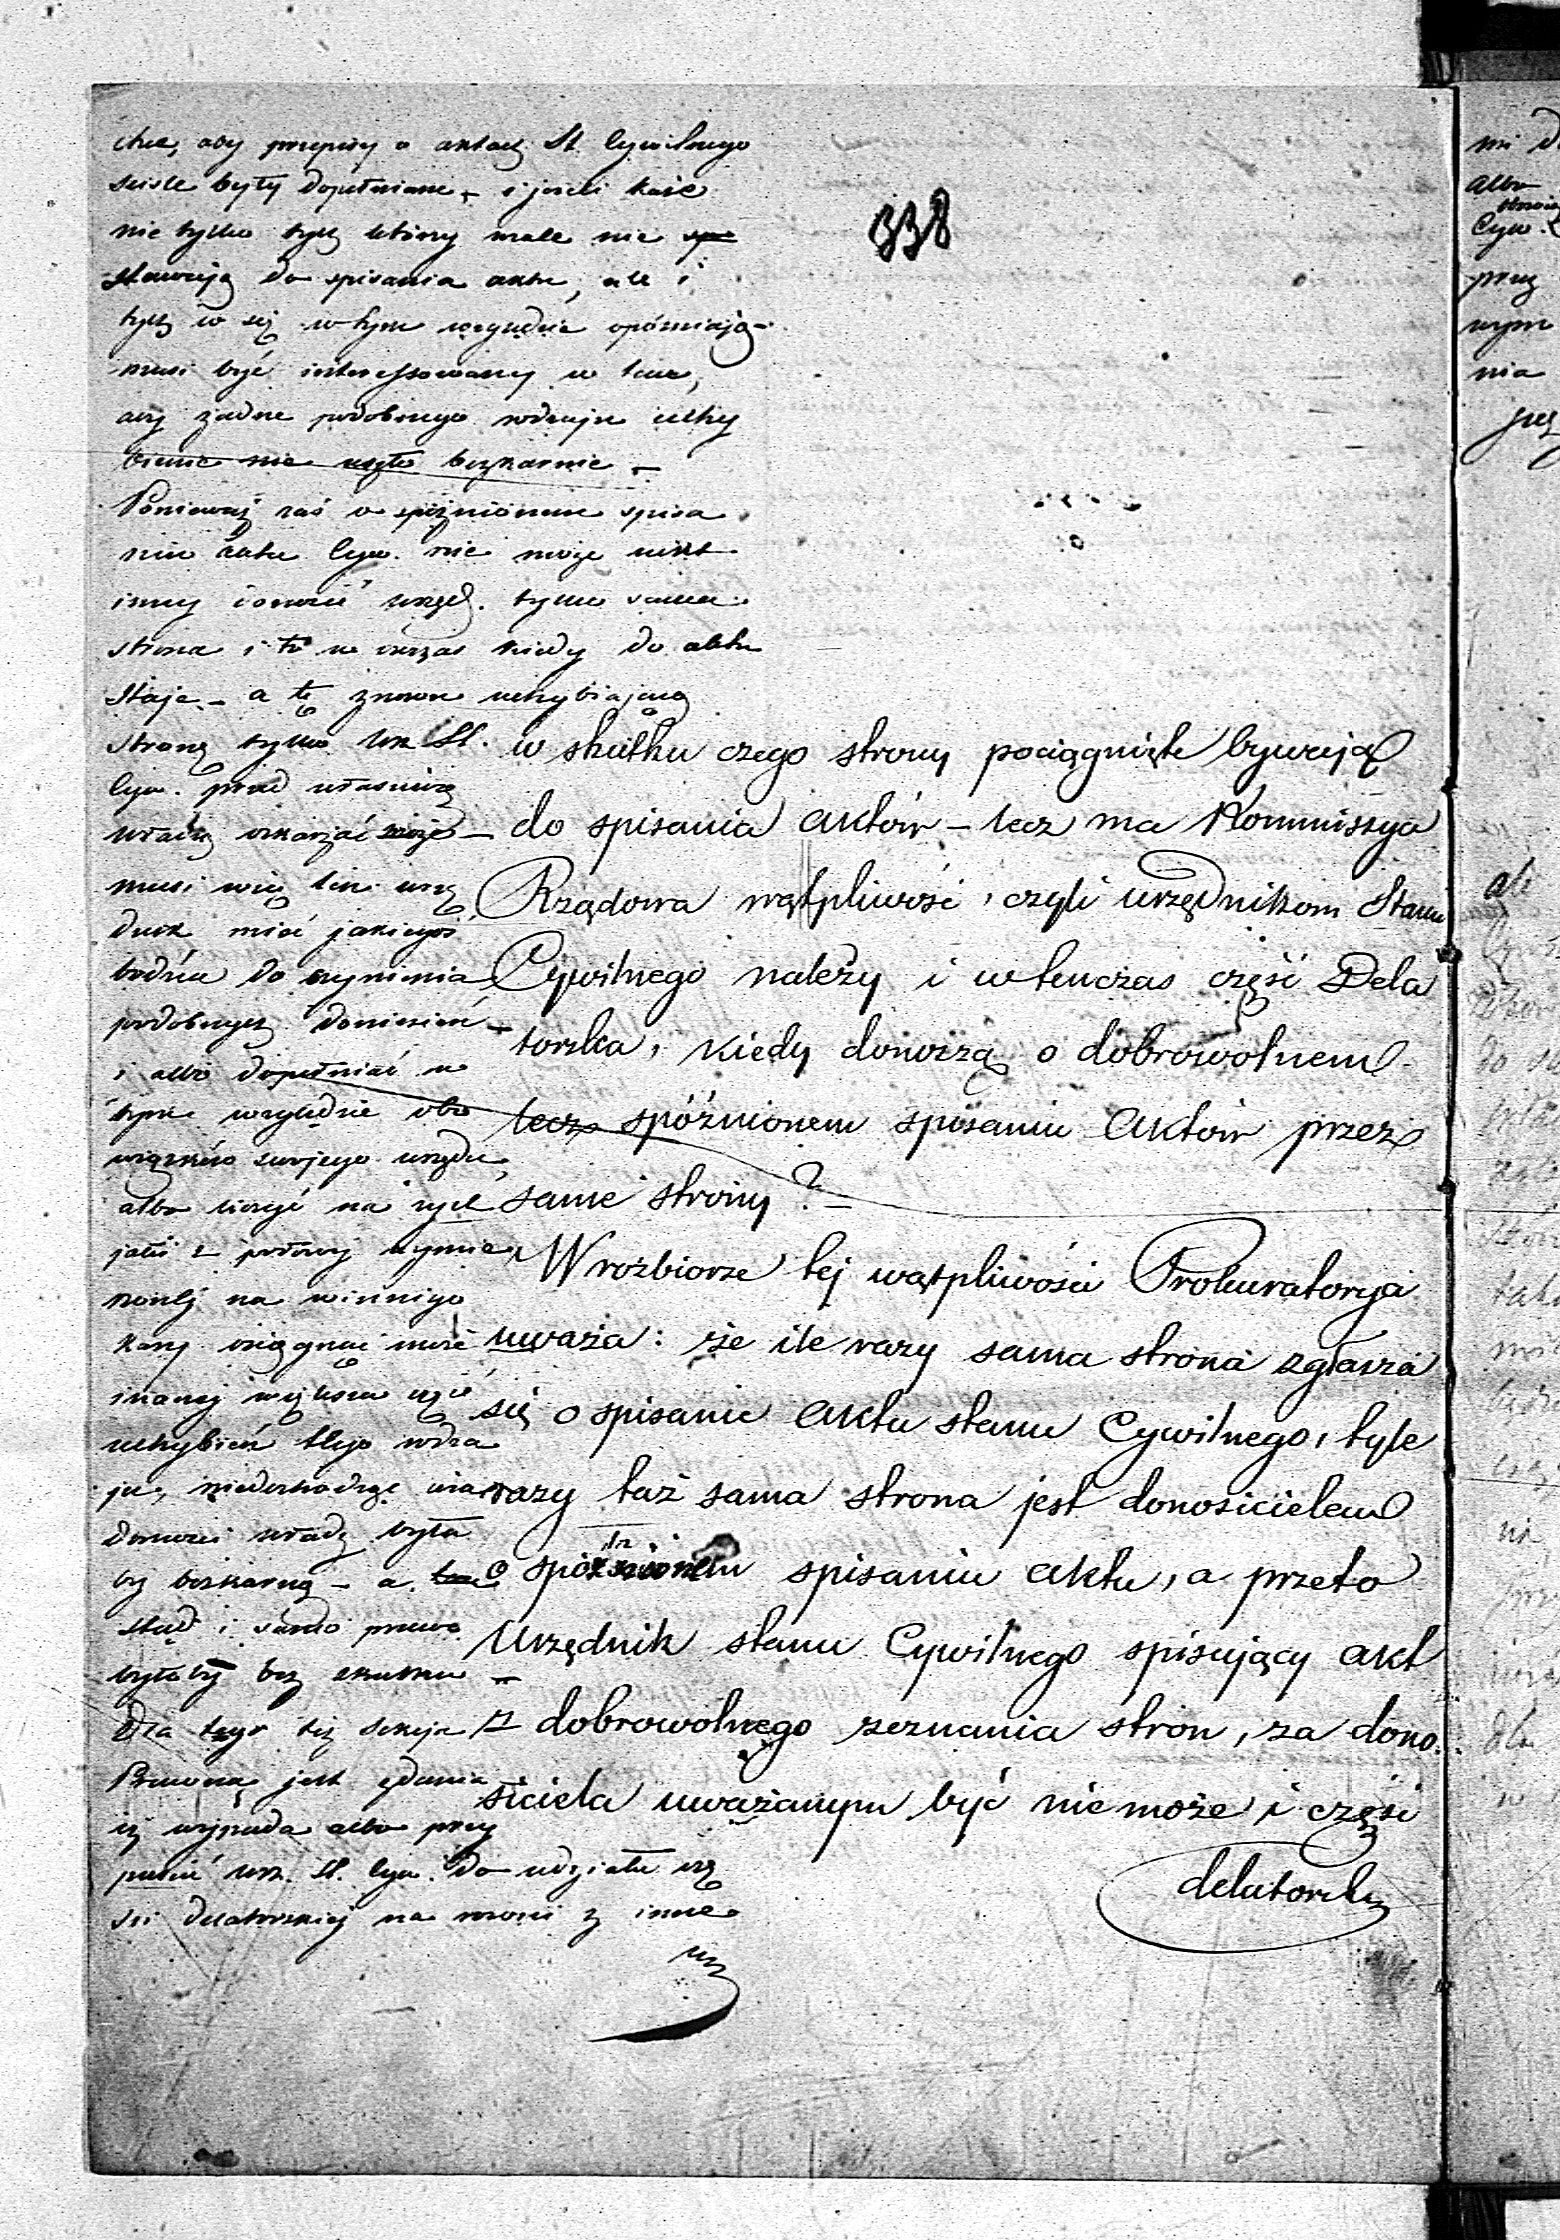 338
chce, aby przepisy o aktach St. Cywilnego
ściśle były dopełniane, i jeżeli karze
nie tylko tych którzy wcale nie
stawają do spisania aktu, ale i
tych co się w tym względzie opóźniają
musi być interessowany w tem,
aby żadne podobnego rodzaju uchy
bienie nie uszło bezkarnie –
Ponieważ zaś o spóźnionem spisa
niu aktu Cyw. nie może nikt
inny donosić urzęd. tylko sama
strona i to w czas kiedy do aktu
staje – a tę znowu uchybiającą
stronę tylko Urz. St.
Cyw. przed właściwą
władzą oskarżać może –
musi więc ten urzę
dnik mieć jakiegoś
bodźca do czynienia
podobnych doniesień –
i albo dopełniać w
tym względzie obo
wiązków swojego urzędu,
albo liczyć na zysk
jaki z połowy wymie
rzonej na winnego
kary osiągnąć może
inaczej większa część
uchybień tego rodza
ju, niedochodząc wia
domości władz była
by bezkarną – a
stąd i samo prawo
byłoby bez skutku –
Dla tego też Sekcja
Prawna jest zdania
iż wypada albo przy
puścić urz. St. Cyw. do udziału czę
ści delatorskiej na równi z inne
mi
w skutku czego strony pociągnięte bywają
do spisania aktów – lecz ma Kommissya
Rządowa wątpliwość, czyli urzędnikom Stanu
Cywilnego należy i wtenczas część Dela
torska, kiedy donoszą o dobrowolnem
lecz spóźnionem spisaniu aktów przez
same strony? –
W rozbiorze tej wątpliwości Prokuratorya
uważa: że ile razy sama strona zgłasza
się o spisanie aktu stanu Cywilnego, tyle
razy taż sama strona jest donosicielem
o spóźnionem spisaniu aktu, a przeto
Urzędnik stanu Cywilnego spisujący akt
z dobrowolnego zeznania stron, za dono
siciela uważanym być nie może i części
delatorskiej